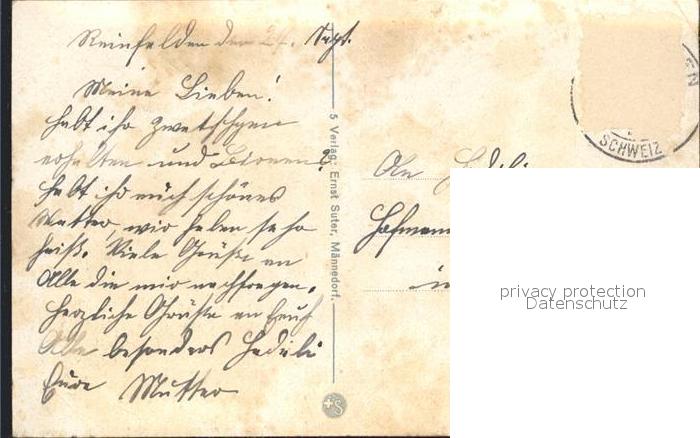 Reinfelden den 24. Sept.
Meine Lieben!
Habt ihr Zwetschgen
erhalten und Birnen?
Habt ihr auch schönes
Wetter, wir haben sehr
heiß. Viele Grüße an
Alle die mir nachfragen.
Herzliche Grüße an Euch
Alle besonders Hedili
Eure Mutter
5 Verlag: Ernst Suter, Männedorf.
SCHWEIZ
An Hedili
Hofmann
in
privacy protection
Datenschutz